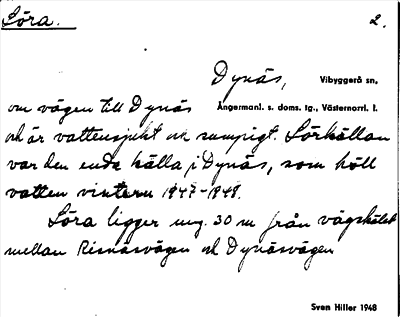 Söra. 2.
Dynäs, Vibyggerå sn,
om vägen till Dynäs Ångermanl. s. doms. tg., Västernorrl. l.
och är vattensjukt och sumpigt. Sörkällan
var den enda källa i Dynäs, som höll
vatten vintern 1947-1948.
Söra ligger ung. 30 m från vägskälet
mellan Risnäsvägen och Dynäsvägen
Sven Hiller 1948